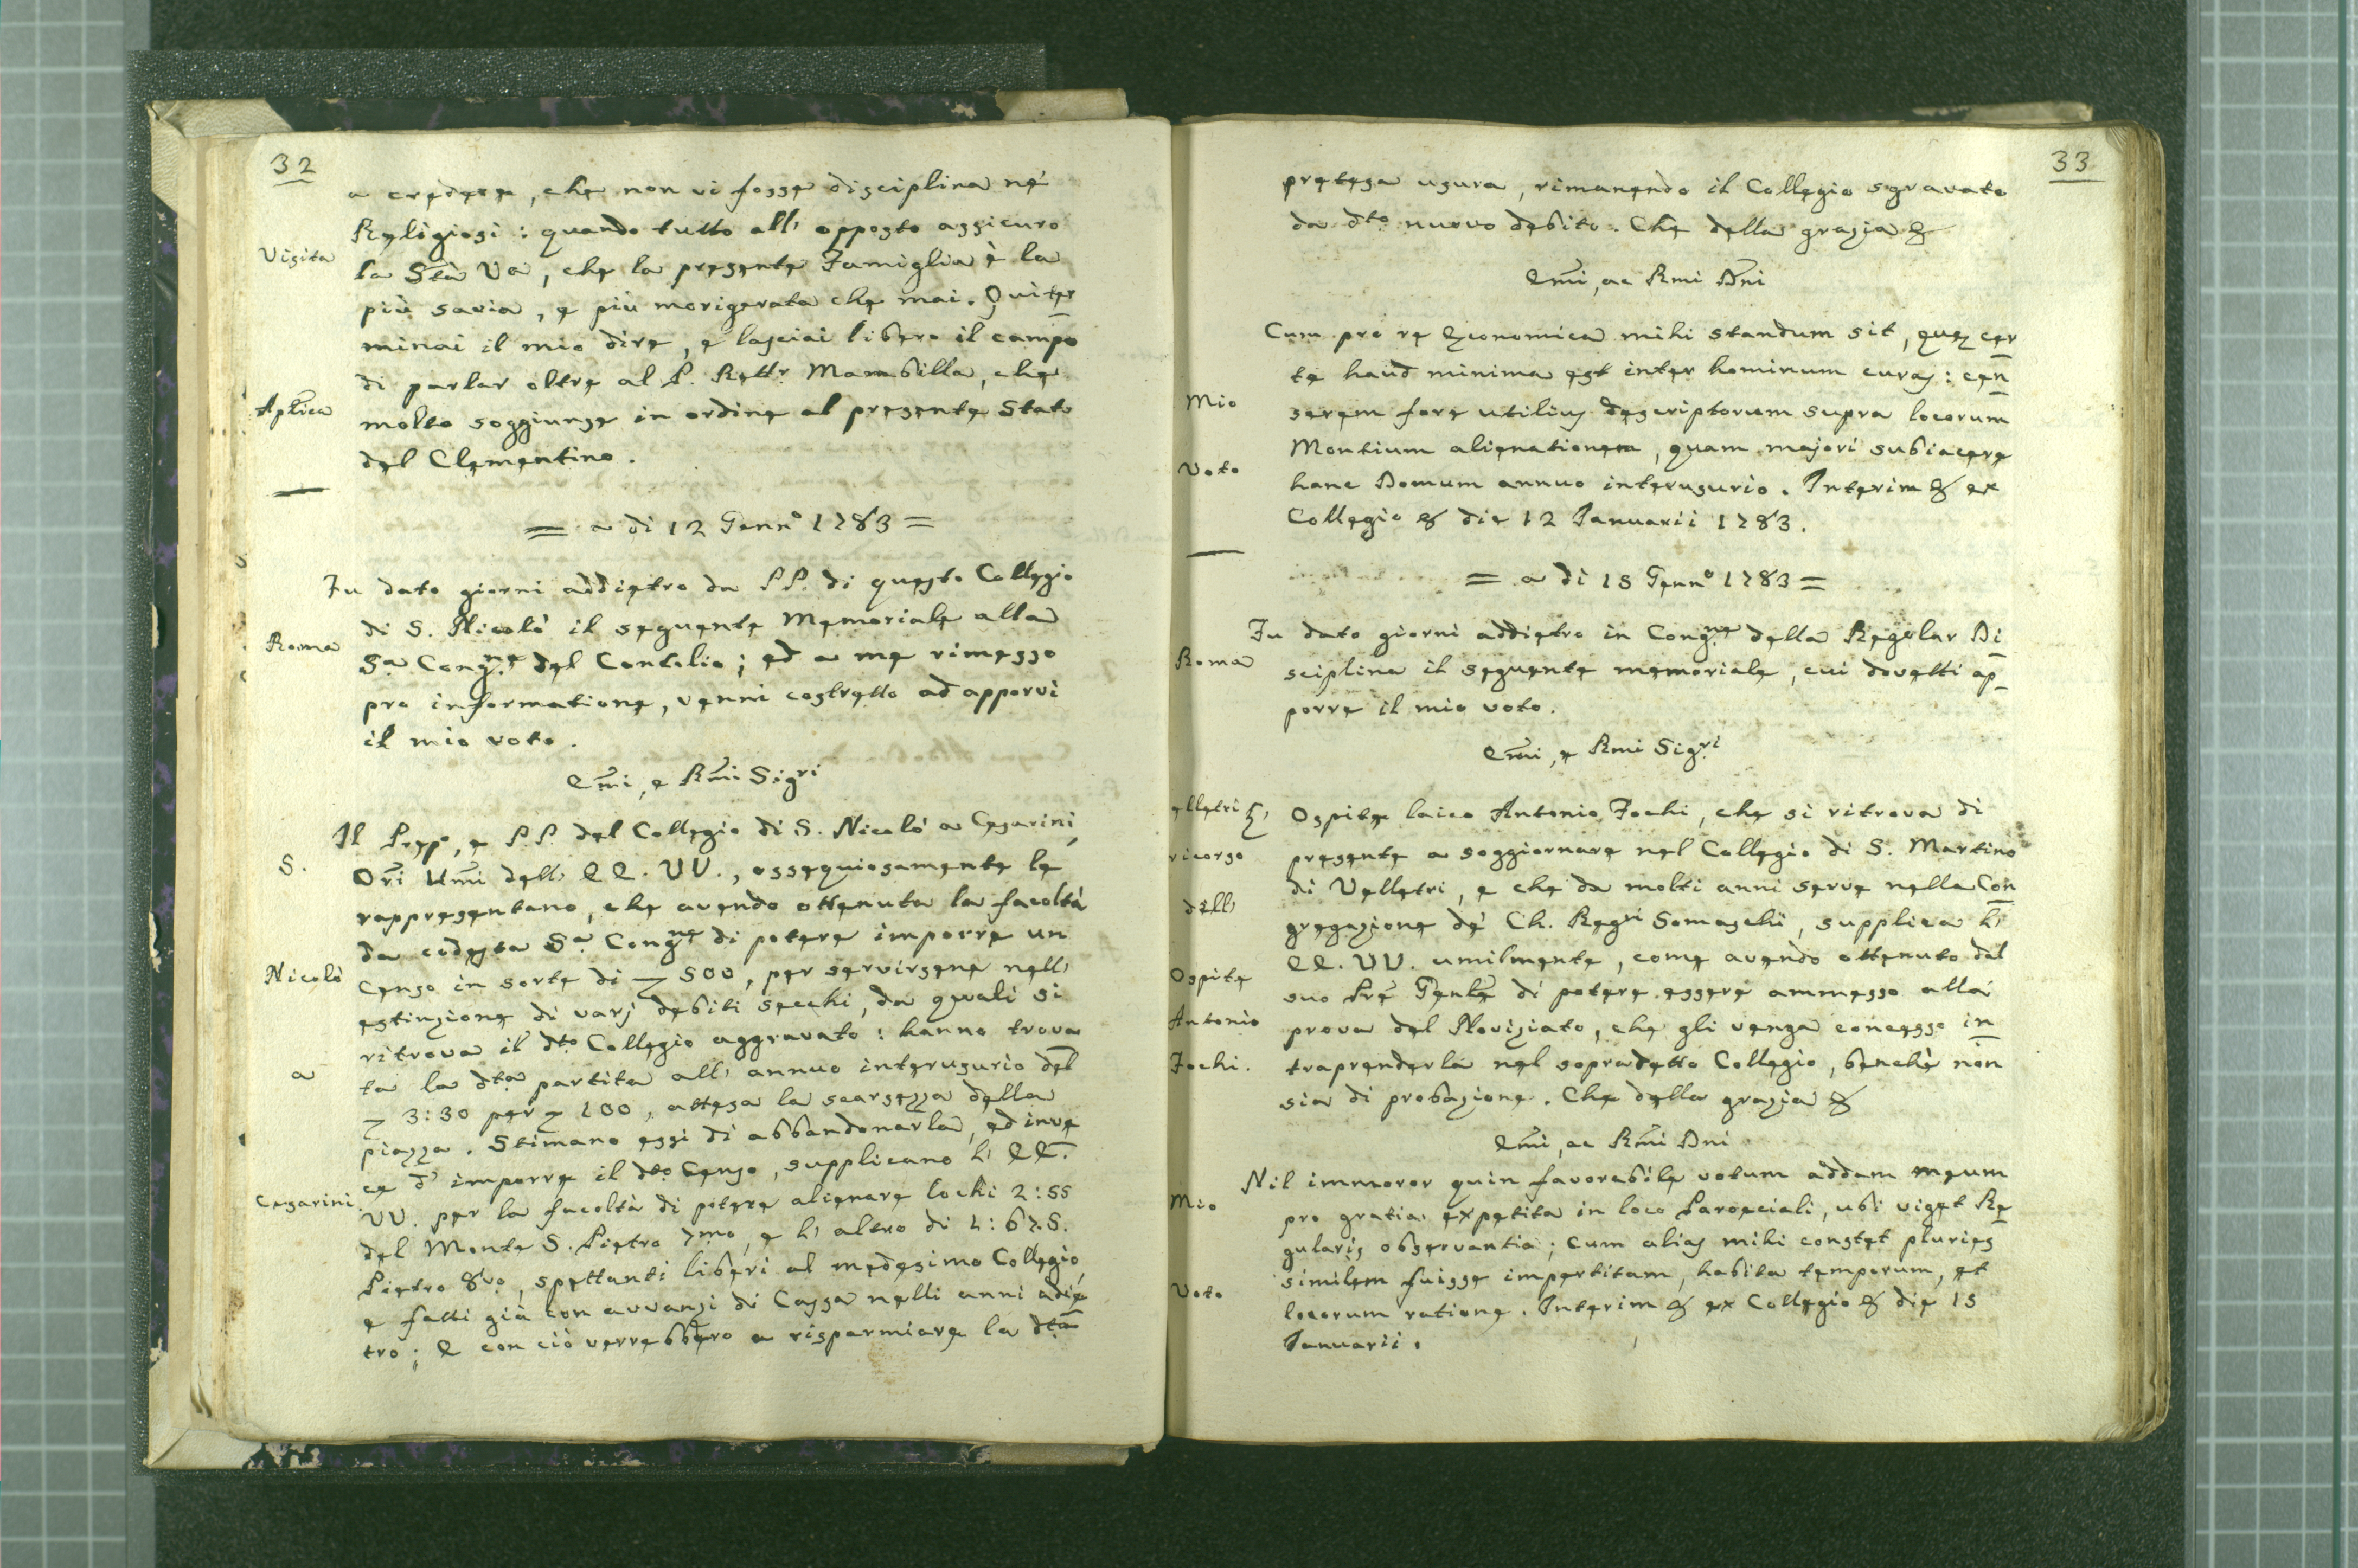 32
a credere, che non vi fosse disciplina nè
Religiosi: quando tutto all' opposto assicuro
Visita
la Stà Va, che la presente Famiglia è la
più savia, e più morigerata che mai. Qui ter
minai il mio dire, e lasciai libero il campo
di parlar oltre al P. Rettr Mambilla, che
Aplica
molto soggiunse in ordine al presente Stato
del Clementino.
= a di 12 Gennº 1783 =
Fu dato giorni addietro da PP. di questo Collegio
di S. Nicolò il seguente Memoriale alla
Roma
Sa Congne del Contilio; ed a me rimesso
pro informatione, venni costretto ad apporvi
il mio voto.
Emi, e Rmi Sigri
Il Prepo, e P.P. del Collegio di S. Nicolò a Cesarini,
S.
Ori Umi dell' EE. VV., ossequiosamente le
rappresentano, che avendo ottenuta la facoltà
da codesta Sa Congne di potere imporre un
Nicolò
Censo in sorte di 500, per servirsene nell'
estinzione di varj debiti secchi, da quali si
ritrova il dto Collegio aggravato: hanno trova
a
ta la dta partita all' annuo interusurio del
3:30 per 100, attesa la scarsezza della
piazza. Stimano essi di abbandonarla, ed inve
ce d' imporre il dto Censo, supplicano l' EE.
Cesarini.
VV. per la facoltà di potere alienare lochi 2:55
del Monte S. Pietro 7mo, e l' altro di 1:67. S.
Pietro 8vo, spettanti liberi al medesimo Collegio,
e fatti già con avvanzi di Cassa nelli anni adie
tro; E con ciò verrebbero a risparmiare la dta
33
pretesa usura, rimanendo il Collegio sgravato
da dto nuovo debito. Che della grazia &
Emi, ac Rmi Dni
Cum pro re Economica mihi standum sit, quæ cer
te haud minima est inter hominum curas: cen
Mio
serem fore utilius descriptorum supra locorum
Montium alienationem, quam majori subiacere
Voto
hanc Domum annuo interusurio. Interim & ex
Collegio & die 12 Januarii 1783.
= a di 15 Gennº 1783 =
Fu dato giorni addietro in Congne della Regolar Di
Roma
sciplina il seguente memoriale, cui dovetti ap
porre il mio voto.
Emi, e Rmi Sigri
elletri
Ospite laico Antonio Fochi, che si ritrova di
ricorso
presente a soggiornare nel Collegio di S. Martino
di Velletri, e che da molti anni serve nella Con
dell'
gregazione dè Ch. Regri Somaschi, supplica l'
EE. VV. umilmente, come avendo ottenuto dal
Ospite
suo Pre Genle di potere essere ammesso alla
Antonio
prova del Noviziato, che gli venga concesso in
Fochi.
traprenderla nel sopradetto Collegio, benchè non
sia di probazione. Che della grazia &
Emi, ac Rmi Dni
Nil immoror quin favorabile votum addam meum
Mio
pro gratia expetita in loco Paroeciali, ubi viget Re
gularis observantia; cum alias mihi constet pluries
similem fuisse impertitam, habita temporum, et
Voto
locorum ratione. Interim & ex Collegio & die 15
Januarii.